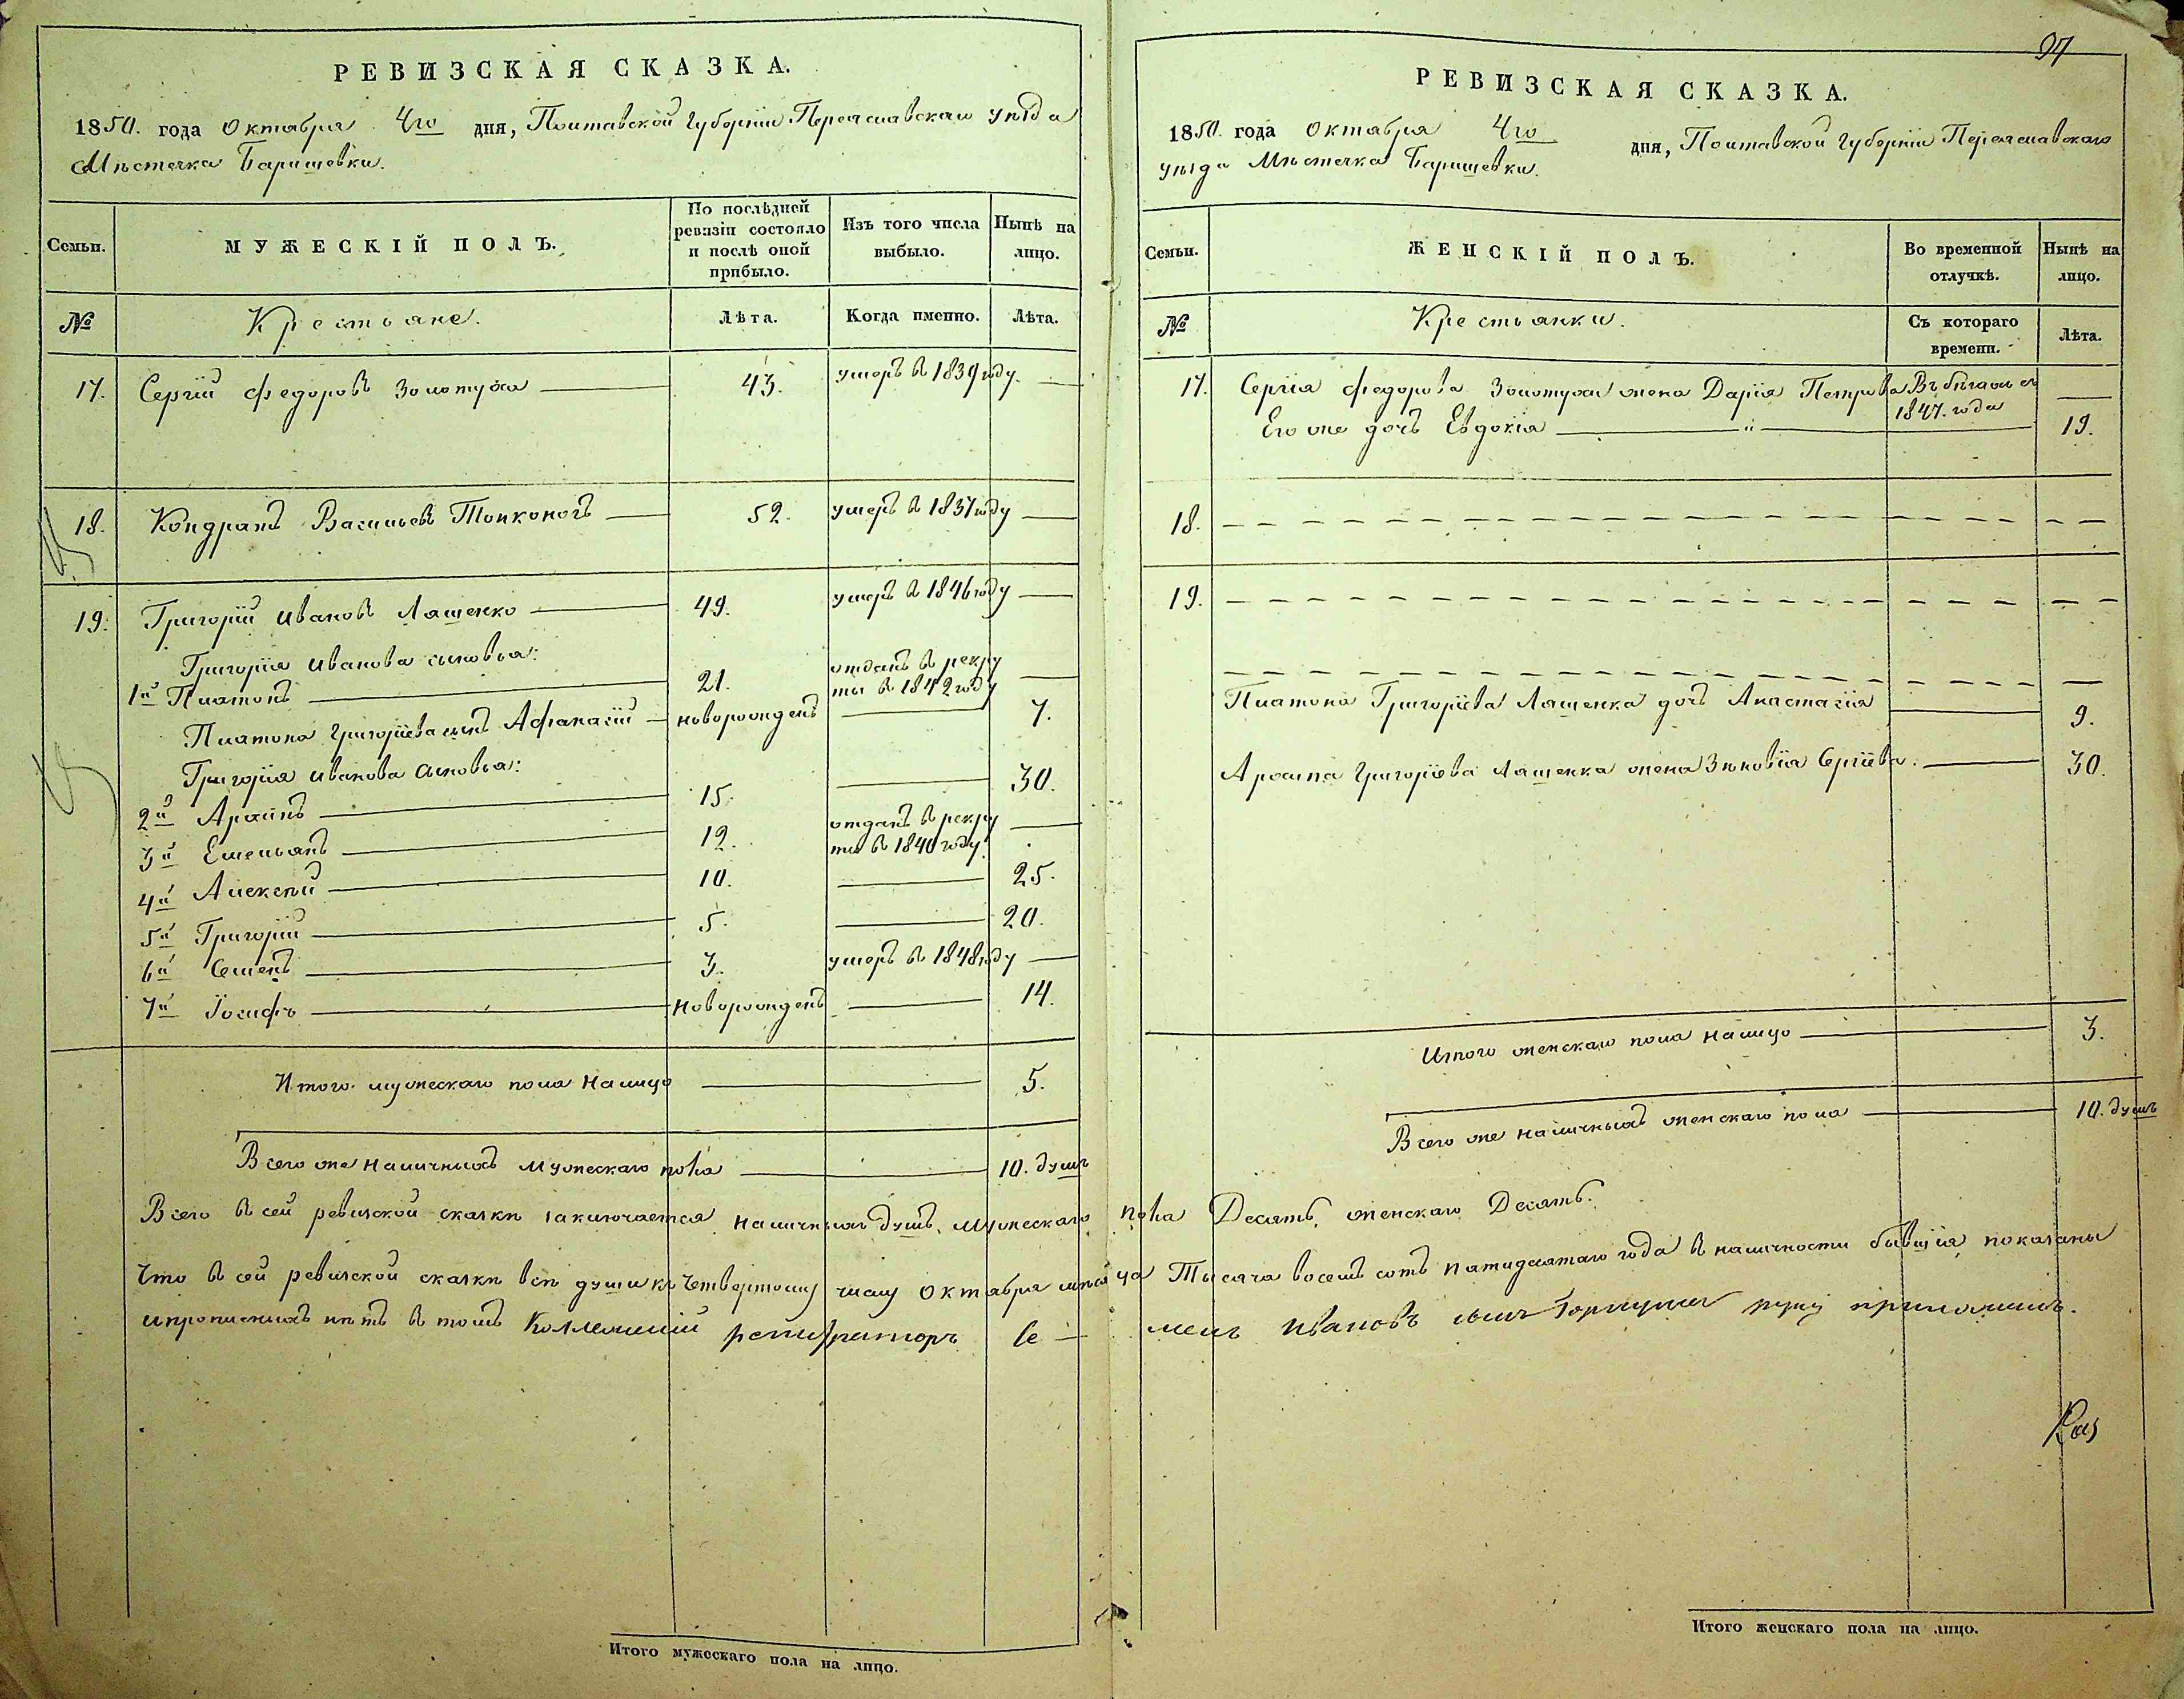 РЕВИЗСКАЯ СКАЗКА.
1850. года Октября 4го дня, Полтавской Губерніи Переяславскаго уѣзда
Мѣстечка Баришевки.
Семьи.
МУЖЕСКІЙ ПОЛЪ.
По послѣдней ревизіи состояло и послѣ оной прибыло.
Изъ того числа выбыло.
Нынѣ на лицо.
№
Крестьяне.
Лѣта.
Когда именно.
Лѣта.
17. Сергій Федоровъ Золотуха 43. умеръ в 1839 году.
18. Кондратъ Васильевъ Тонконогъ 52. умеръ в 1837 году
19. Григорій Ивановъ Ляшенко 49. умеръ в 1846 году
Григорія Иванова сыновья:
1й Платонъ 21. отданъ в рекру
ты в 1842 году
Платона Григоріева сынъ Афанасій новорожденъ 7.
Григорія Иванова сыновья:
2й Архипъ 15. 30.
3й Емельянъ 12. отданъ в рекру
ты в 1840 году.
4й Алексѣй 10. 25.
5й Григорій 5. 20.
6й Семенъ 3. умеръ в 1848 году
7й Іосифъ новорожденъ 14.
Итого мужескаго пола налицо 5.
Всего же наличныхъ мужескаго пола 10. душъ
97
РЕВИЗСКАЯ СКАЗКА.
1850. года Октября 4го дня, Полтавской Губерніи Переяславскаго
уѣзда Мѣстечка Баришевки.
Семьи.
ЖЕНСКІЙ ПОЛЪ.
Во временной отлучкѣ.
Нынѣ на лицо.
№
Крестьянки.
Съ котораго времени.
Лѣта.
17. Сергія Федорова Золотухи жена Дарія Петрова Въ бѣгахъ съ
1847. года
Его же дочь Евдокія " 19.
18.
19.
Платона Григоріева Ляшенка дочь Анастасія 9.
Архипа Григоріева Ляшенка жена Зѣновія Сергіева. 30.
Итого женскаго пола налицо 3.
Всего же наличныхъ женскаго пола 10. душъ
Всего в сей ревизской сказкѣ заключается наличныхъ душъ, мужескаго пола Десять, женскаго Десять.
Что в сей ревизской сказкѣ всѣ души къ Четвертому числу Октября мѣсяца Тысяча восемь сотъ пятидесятаго года в наличности бывшія, показаны
и прописныхъ нѣтъ в томъ Коллежскій регистраторъ Се-менъ Ивановъ сынъ руку приложилъ.
Раз
Итого мужескаго пола на лицо.
Итого женскаго пола на лицо.